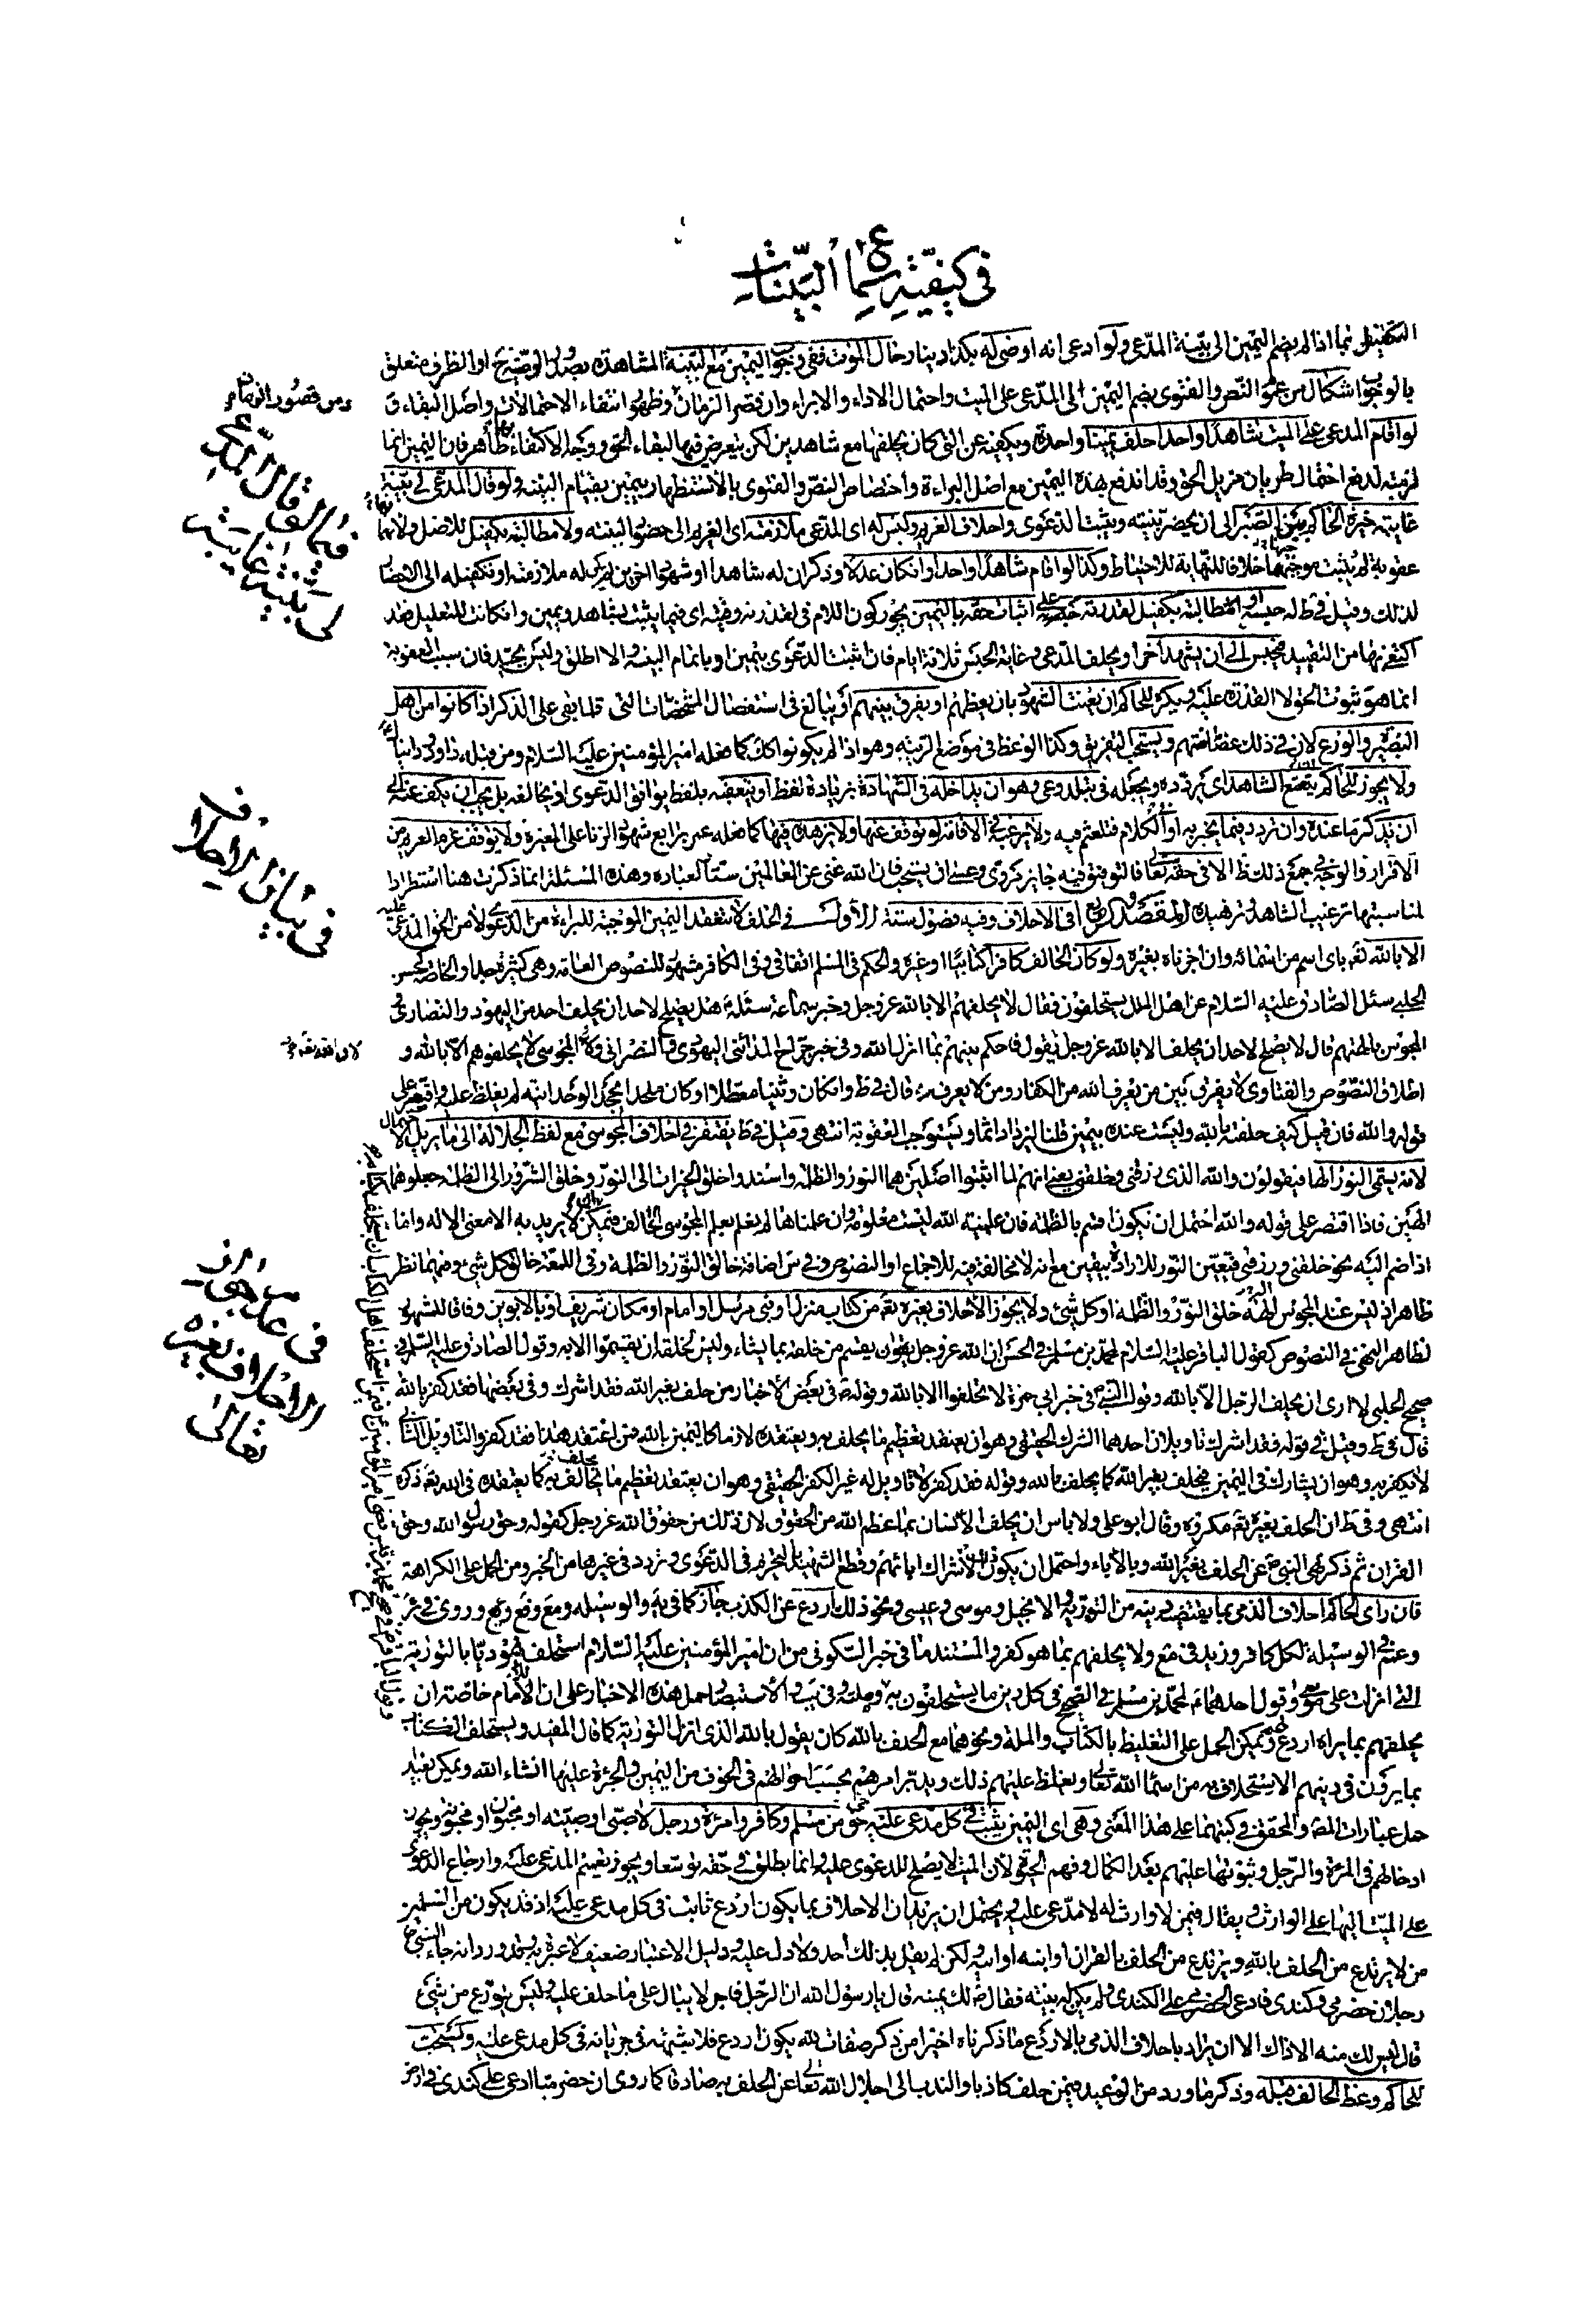 في كيفيّة سماع البيّنات
التكفيل بما اذا لم يضم اليمين الى بيّنة المدّعي ولو ادعى انه اوصى له بكذا دينار حال الموت ففي وجوب اليمين مع البينة المشاهدة او الظرف متعلق
بالوجوب اشكال من عموم النّص والفتوى بضم اليمين الى المدّعي على الميت واحتمال الاداء والابراء وان قصر الزمان وظهور انتفاء الاحتمالات واصل البقاء
لو اقام المدعي على الميت شاهدا واحدا حلف يمينا واحدة ويكفيه عن التي كان يحلفها مع شاهدين لكن يتعرض فيها لبقاء الحق ووجه الاكتفاء بها ظاهر فان اليمين انما
لزمته لدفع احتمال طريان مزيل الحق وقد اندفع بهذه اليمين مع اصل البراءة واختصاص النصّ والفتوى بالاستظهار بيمين بقيام البينه ولو قال المدّعي لي بيّنة
غايبة خيّره الحاكم بين الصّبر الى ان يحضر بيّنته ويثبت الدعوى واحلاف الغريم وليس له اي المدّعي ملازمته اي الغريم الى حضور البينه ولا مطالبته بكفيل للاصل ولانّها
عقوبة لم يثبت موجبها خلافا للنهاية للاحتياط وكذا لو اقام شاهدا واحدا وان كان عدلا وذكر ان له شاهدا او شهودا اخرين لم يكن له ملازمته او تكفيله الى الاحضار
لذلك وقيل في ط له حبسه او المطالبة بكفيل لقدرته على اثبات حقه باليمين يجوز كون اللام في لقدرته وقيته اي فيما يثبت بشاهد ويمين وان كانت للتعليل فقد
اكتفى بها من التقييد فيحبس الى ان يشهد آخر او يحلف المدعي وغاية الحبس ثلاثة ايام فان اثبت الدّعوى بيمين او باتمام البينه والا اطلق وليس بجيّد فان سبب العقوبة
انما هو ثبوت الحق لا القدرة عليه ويكره للحاكم ان يعنت الشهود بان يعظهم او يفرق بينهم او يبالغ في استفصال المشخصات التي قلما يبقى على الذكر اذا كانوا من اهل
البصيرة والورع لان في ذلك غضاضتهم ويستحب التفريق وكذا الوعظ في موضع الريبة وهو اذا لم يكونوا كك كما فعله امير المؤمنين عليه السلام ومن قبله داود ودانيال
ولا يجوز للحاكم ان يتعتع الشاهد اي يردّده ويجعله في تبلد وعي وهو ان يداخله في الشهادة بزيادة لفظ او يتعقبه بلفظ يوافق الدّعوى او يخالفه بل يجب ان يكف عنه الى
ان يذكر ما عنده وان تردد فيما يخبر به او الكلام فتلعثم فيه ولا يرغبه في الاقامة لو توقف عنها ولا يزهده فيها كما فعله عمر برابع شهود الزنا على المغيرة ولا يوقف عزم الغريم عن
الاقرار والوجه في جميع ذلك ظ الا في حقه تعالى فالتوقيف فيه جايز كما روي وعسى ان يستحب فان الله غني عن العالمين ستّار لعباده وهذه المسئلة انما ذكرت هنا استطرادا
لمناسبتها ترغيب الشاهد وتزهيده المقصد الرابع في الاحلاف وفيه فصول ستة الاول في الحلف لا تنعقد اليمين الموجبة للبراءة من الدعوى ولا من الحق المدعى عليه
الا بالله تعالى باي اسم من اسمائه وان اجزناه بغيره ولو كان الحالف كافرا كتابيّا او غيره والحكم في المسلم اتفاقي وفي الكافر مشهور للنصوص العامه وهي كثيرة جدا والخاصة كحسن
الحلبي سئل الصّادق عليه السّلام عن اهل الملل يستحلفون فقال لا يحلفهم الا بالله عز وجل وخبر سماعة سئله هل يصلح لاحد ان يحلف احدا من اليهود والنصارى
المجوس بالهتهم قال لا يصلح لاحد ان يحلف الا بالله عز وجل يقول فاحكم بينهم بما انزل الله وفي خبر جراح المدائني اليهودي والنصراني والمجوسي لا يحلفوهم الا بالله و
اطلاق النصّوص والفتاوى لا يفرق بين من يعرف الله من الكفار ومن لا يعرفه قال في ط وان كان وثنيا معطلا او كان ملحدا يجحد الوحدانية لم يغلظ عليه واقتصر على
قوله والله فان قيل كيف حلفته بالله وليست عنده بيمين قلنا ليزداد اثما ويستوجب العقوبة انتهى وقيل في ط يفتقر في احلاف المجوسي مع لفظ الجلالة الى ما يزيل الاحتمال
لانه يسمّى النور الها فيقولون والله الذي رزقني وخلقني يعني انهم لما اثبتوا اصلين هما النور والظلمه واسندوا خلق الخيرات الى النور وخلق الشرور الى الظلمه جعلوهما
الهين فاذا اقتصر على قوله والله احتمل ان يكون قسم بالظلمة فان علميته الله ليست معلومة وان علمناها لم نعلم بعلم المجوسي الحالف فيمكن لا يريد به الا معنى الاله واما
اذا ضم اليه نحو خلقني ورزقني فيتعين النور للارادة بيقين مع انه لا مخالفة فيه للاجماع او النصوص وفي س اضافة خالق النّور والظلمة وفي اللمعة خالق كل شيء وفيهما نظر
ظاهر اذ ليس عند المجوس اله خلق النّور والظلمه او كل شيء ولا يجوز الاحلاف بغيره تعالى من كتاب منزل او نبي مرسل او امام او مكان شريف او بالابوين وفاقا للمشهور
لظاهر النهي في النصوص كقول الباقر عليه السّلام لمحمّد بن مسلم في الحسن ان الله عز وجل يقسم من خلقه بما يشاء وليس لخلقه ان يقسموا الا به وقول الصادق عليه السّلم في
صحيح الحلبي لا ارى ان يحلف الرّجل الا بالله وقول النبي في خبر ابي حمزة لا تحلفوا الا بالله وقوله في بعض الاخبار من حلف بغير الله فقد اشرك وفي بعضها فقد كفر بالله
قال في ط وقيل في قوله فقد اشرك تاويلان احدهما الشرك الحقيقي وهو ان يعتقد تعظيم ما يحلف به ويعتقده لازما كاليمين بالله فمن اعتقد هذا فقد كفر والتاويل الثاني
لا يكفر به وهو ان يشارك في اليمين فيحلف بغير الله كما يحلف بالله وقوله فقد كفر لا تاويل له غير الكفر الحقيقي وهو ان يعتقد تعظيم ما يحلف به كما يعتقده في الله تعالى ذكره
انتهى وفي ط ان الحلف بغيره تعالى مكروه وقال ابو علي ولا باس ان يحلف الانسان بما عظم الله من الحقوق لان ذلك من حقوق الله عز وجل كقوله وحق رسول الله وحق
القران ثم ذكر نهي النبي عن الحلف بغير الله وبالاباء واحتمل ان يكون ذلك لاشراك ابائهم وقطع الشهيد بالتحريم في الدّعوى وتردد في غيرها من الخبر ومن الحمل على الكراهة
فان راى الحاكم احلاف الذمي بما يقتضيه دينه من التورية والانجيل وموسى وعيسى ونحو ذلك اردع عن الكذب جاز كما في يه والوسيله
وعمم في الوسيلة لكل كافر وزيد في مع ولا يحلفهم بما هو كفر والمستند ما في خبر السّكوني من ان امير المؤمنين عليه السّلام استحلف يهوديّا بالتورية
التي انزلت على موسى وقول احدهما لمحمّد بن مسلم في الصحيح في كل دين ما يستحلفون به وفي يب والاستبصار حمل هذه الاخبار على ان للامام خاصّة ان
يحلفهم بما يراه اردع لهم ويمكن الحمل على التغليظ بالكتاب والملة ونحوهما مع الحلف بالله كان يقول بالله الذي انزل التورية كما قال المفيد ويستحلف اهل الكتاب
بما يرون في دينهم الاستحلاف به من اسماء الله تعالى ويغلظ عليهم ذلك ويدبّر امرهم بحسب احوالهم في الخوف من اليمين والجرئة عليها انشاء الله ويمكن بعيد
حمل عبارات المصّ والمحقق في كتبهما على هذا المعنى وهي اي اليمين يثبت في كل مدّعى عليه حتى من مسلم وكافر وامرئة ورجل لا صبي او صبيّة او مجنون او مجنونة ويجوز
ادخالهم في المرئة والرّجل وثبوتها عليهم بعد الكمال وفهم الحق لان الميت لا يصلح للدعوى عليه وانما يطلق في حقه توسّعا ويجوز تعميم المدعى عليه وارجاع الدعوى
على الميّت اليها على الوارث ويقال فيمن لا وارث له لا مدّعى عليه ويحتمل ان يريد ان الاحلاف بما يكون اردع ثابت في كل مدعى عليه اذ قد يكون من المسلمين
من لا يرتدع من الحلف بالله ويرتدع من الحلف بالقران او ابنه او ابيه ولكن لم يقل بذلك احد ولا دل عليه دليل الاعتبار ضعيف لا عبرة به وقد ورد انه جاء النبيّ
رجلان حضرمي وكندي فادعى الحضرمي على الكندي ولم يكن له بينة فقال لك يمينه قال يا رسول الله ان الرّجل فاجر لا يبالي على ما حلف عليه وليس يتورّع من شيء
قال ليس لك منه الا ذاك الا ان يراد باحلاف الذمي بالاردع ما ذكرناه اخيرا من ذكر صفات لله يكون اردع فلا شبهة في جريانه في كل مدعى عليه ويستحب
للحاكم وعظ الحالف قبله وذكر ما ورد من الوعيد فيمن حلف كاذبا والندب الى اجلال الله تعالى عن الحلف به صادقا كما روي ان حضرميّا ادعى على كندي في ارض
ومن قصور الزمان
فيما لو قال المدّعي
لي بيّنة غايبة
في بيان الاحلاف
في عدم جواز
الاحلاف بغيره
تعالى